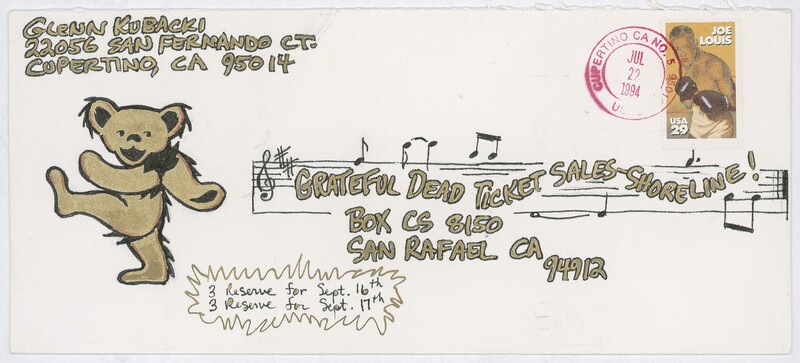 GLENN KUBACKI
22056 SAN FERNANDO CT.
CUPERTINO, CA 95014
CUPERTINO CA NO. 5 9501
JUL
22
1994
JOE
LOUIS
USA
29
GRATEFUL DEAD TICKET SALES-SHORELINE!
BOX CS 8150
SAN RAFAEL CA
94912
3 Reserve for Sept. 16th
3 Reserve for Sept. 17th